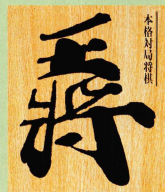 本格対局将棋
王将